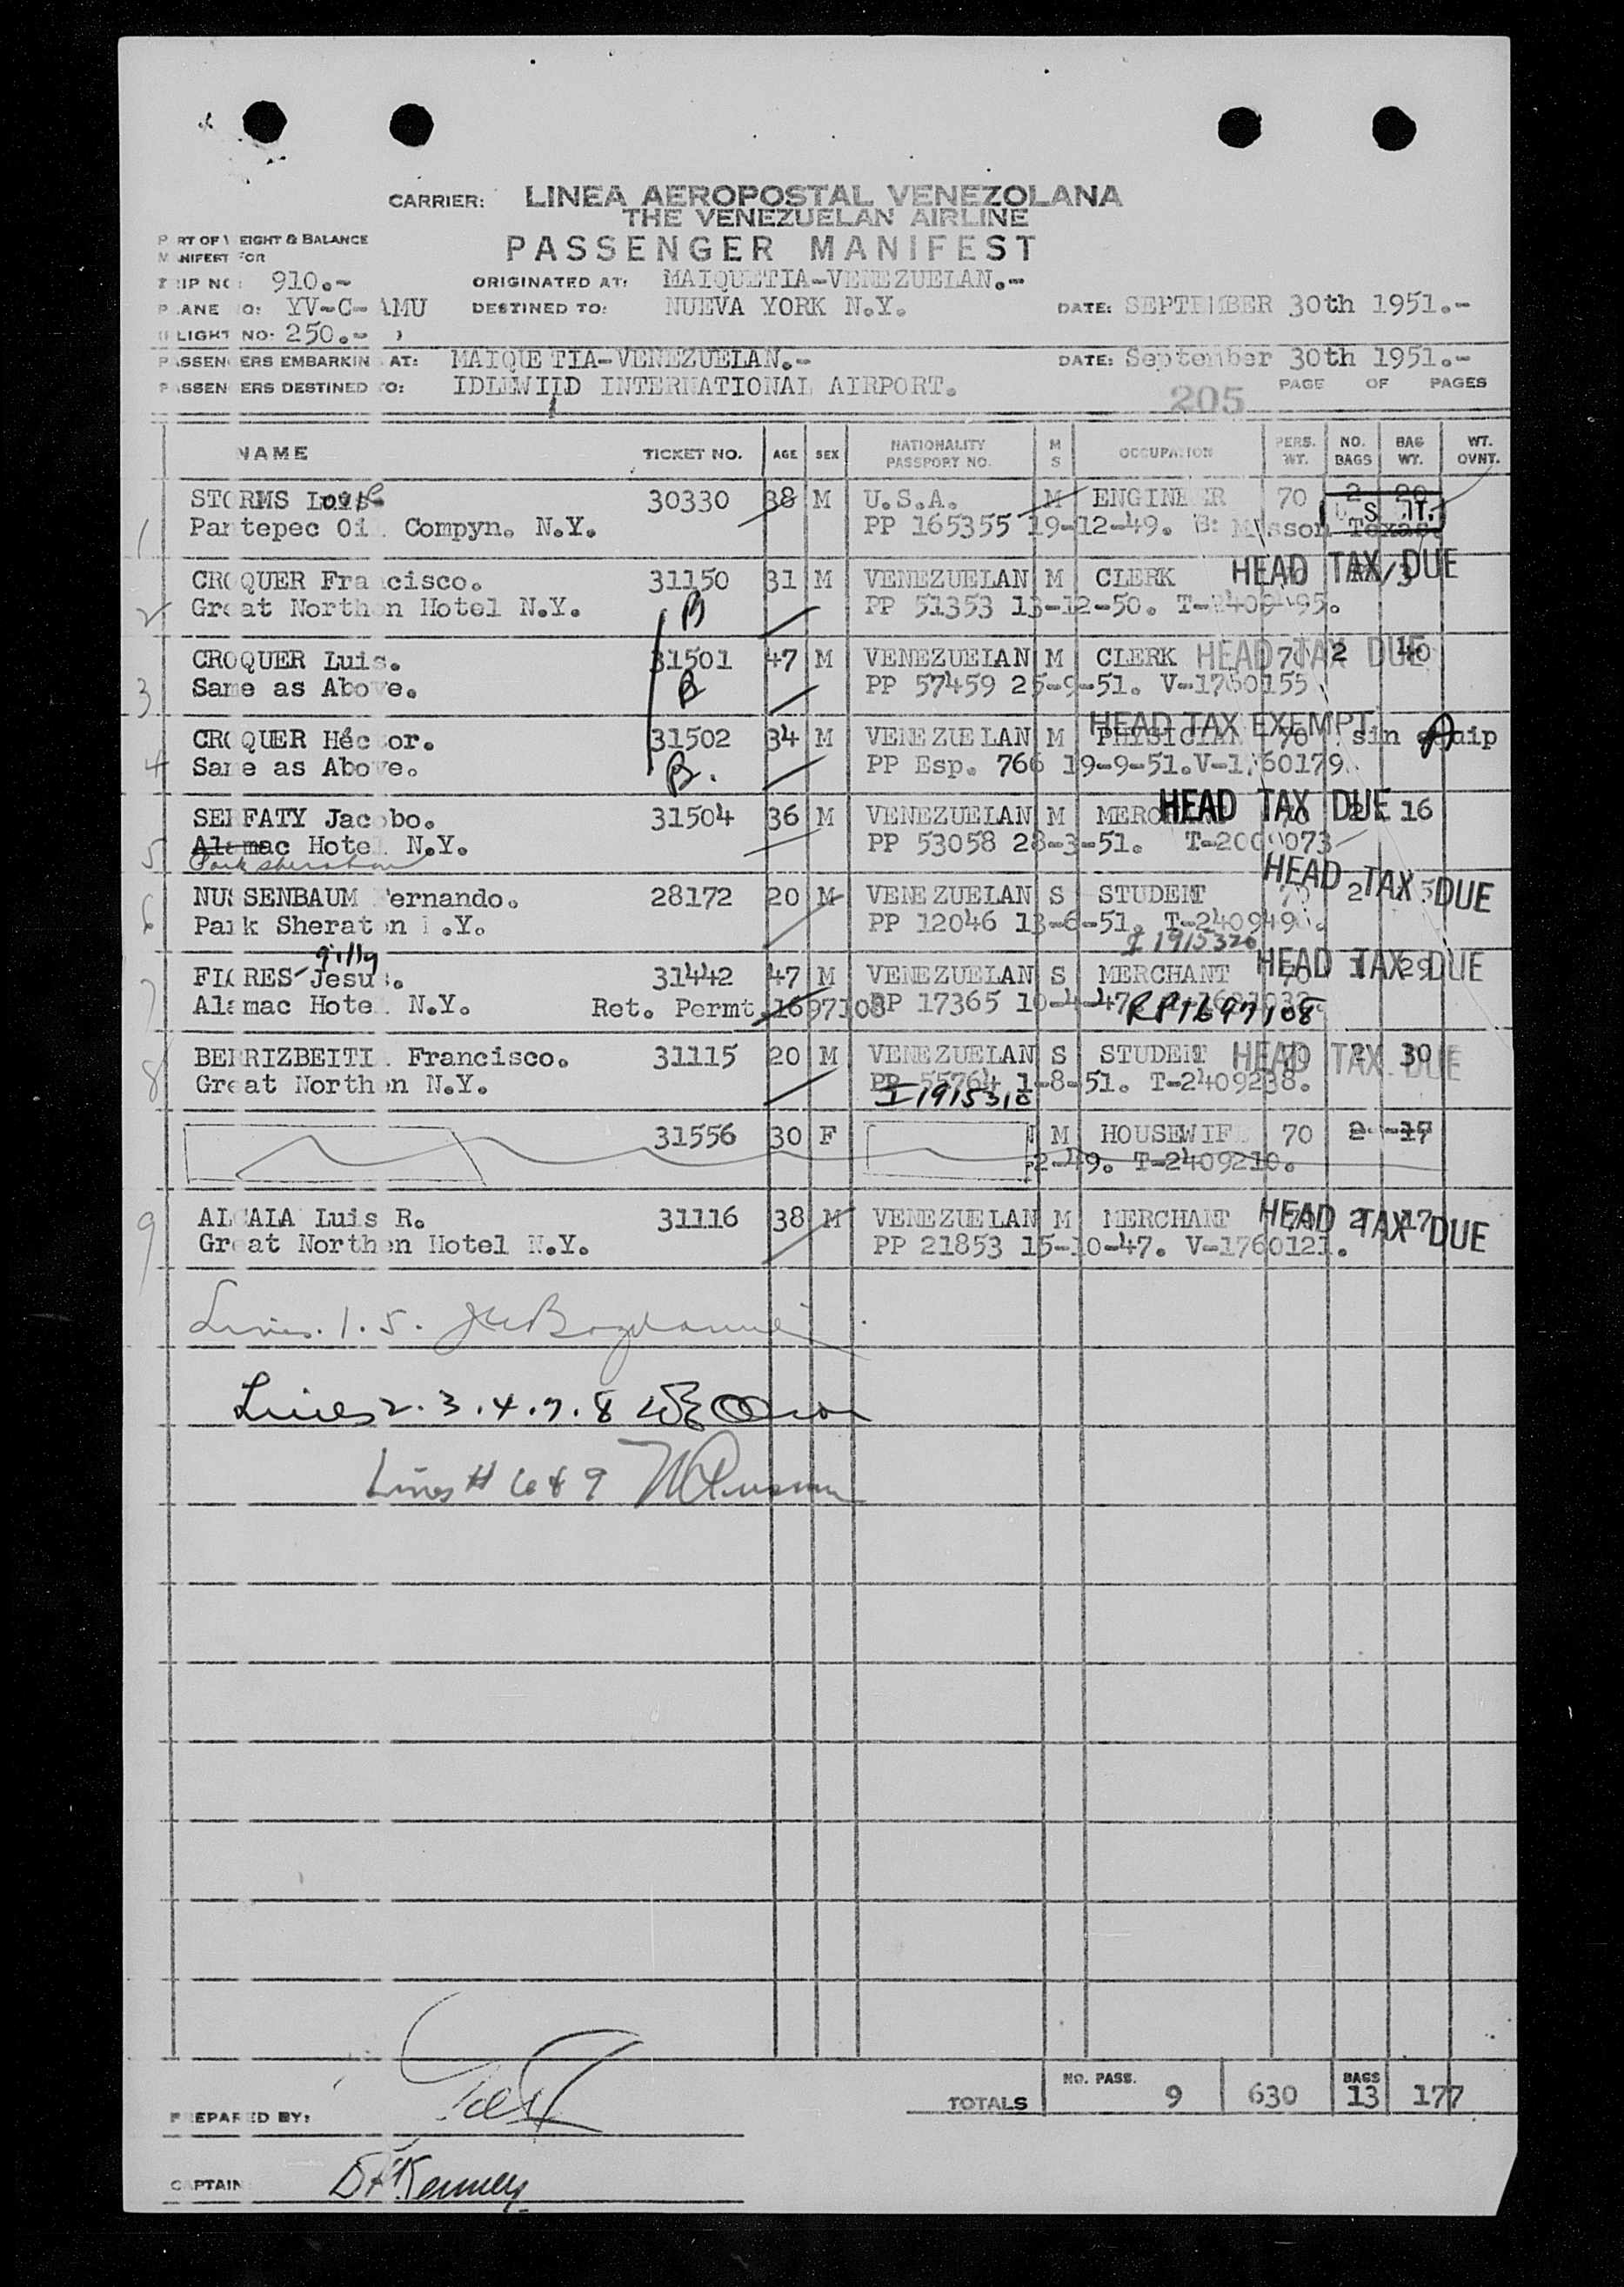 CARRIER: LINEA AEROPOSTAL VENEZOLANA
THE VENEZUELAN AIRLINE
PASSENGER MANIFEST
P RT OF EIGHT & BALANCE
M NIFEST FOR
TRIP NO: 910.- ORIGINATED AT: MAIQUETIA-VENEZUELAN.-
P ANE O: YV-C-AMU DESTINED TO: NUEVA YORK N.Y. DATE: SEPTEMBER 30th 1951.-
LIGHT NO: 250.- )
PASSENGERS EMBARKIN AT: MAIQUETIA-VENEZUELAN.- DATE: September 30th 1951.-
PASSEN ERS DESTINED TO: IDLEWILD INTERNATIONAL AIRPORT. 205 PAGE OF PAGES
NAME TICKET NO. AGE SEX NATIONALITY PASSPORT NO. M S OCCUPATION PERS. WT. NO. BAGS BAG WT. WT. OVNT.
1 STORMS Louis 30330 38 M U.S.A. M ENGINEER 70 2 20
Pantepec Oil Compyn. N.Y. PP 165355 19-12-49. B: Misson Texas. U.S. CIT.
2 CROQUER Francisco. 31150 31 M VENEZUELAN M CLERK HEAD TAX DUE
Great Northen Hotel N.Y. B PP 51353 13-12-50.
3 CROQUER Luis. 31501 47 M VENEZUELAN M CLERK 70 2 40 HEAD TAX DUE
Same as Above. B PP 57459 25-9-51. V-1760155
4 CROQUER Héctor. 31502 34 M VENEZUELAN M PHYSICIAN 70 sin equip HEAD TAX EXEMPT
Same as Above. B. PP Esp. 766 19-9-51. V-1760179.
5 SERFATY Jacobo. 31504 36 M VENEZUELAN M MERCHANT 70 16 HEAD TAX DUE
Alamac Hotel N.Y. PP 53058 28-3-51.
Park Sheraton
6 NUSSENBAUM Fernando. 28172 20 M VENEZUELAN S STUDENT 70 2 HEAD TAX DUE
Park Sheraton N.Y. PP 12046 13-6-51.
I 1915320
7 FLORES Jesus. 31442 47 M VENEZUELAN S MERCHANT 70 1 29 HEAD TAX DUE
Alamac Hotel N.Y. Ret. Permt. 1697108 PP 17365 10-4-47. RP1697108
8 BERRIZBEITIA Francisco. 31115 20 M VENEZUELAN S STUDENT 70 2 30 HEAD TAX DUE
Great Northen N.Y. PP 55764 1-8-51. T-2409238.
I-1915310
31556 30 F M HOUSEWIFE 70 2 17
2-49. T-2409210.
9 ALCALA Luis R. 31116 38 M VENEZUELAN M MERCHANT 70 2 17 HEAD TAX DUE
Great Northen Hotel N.Y. PP 21853 15-10-47. V-1760121.
Lines. 1. 5.
Lines 2. 3. 4. 7. 8
Lines # 6 & 9
TOTALS NO. PASS. 9 630 BAGS 13 177
PREPARED BY:
CAPTAIN